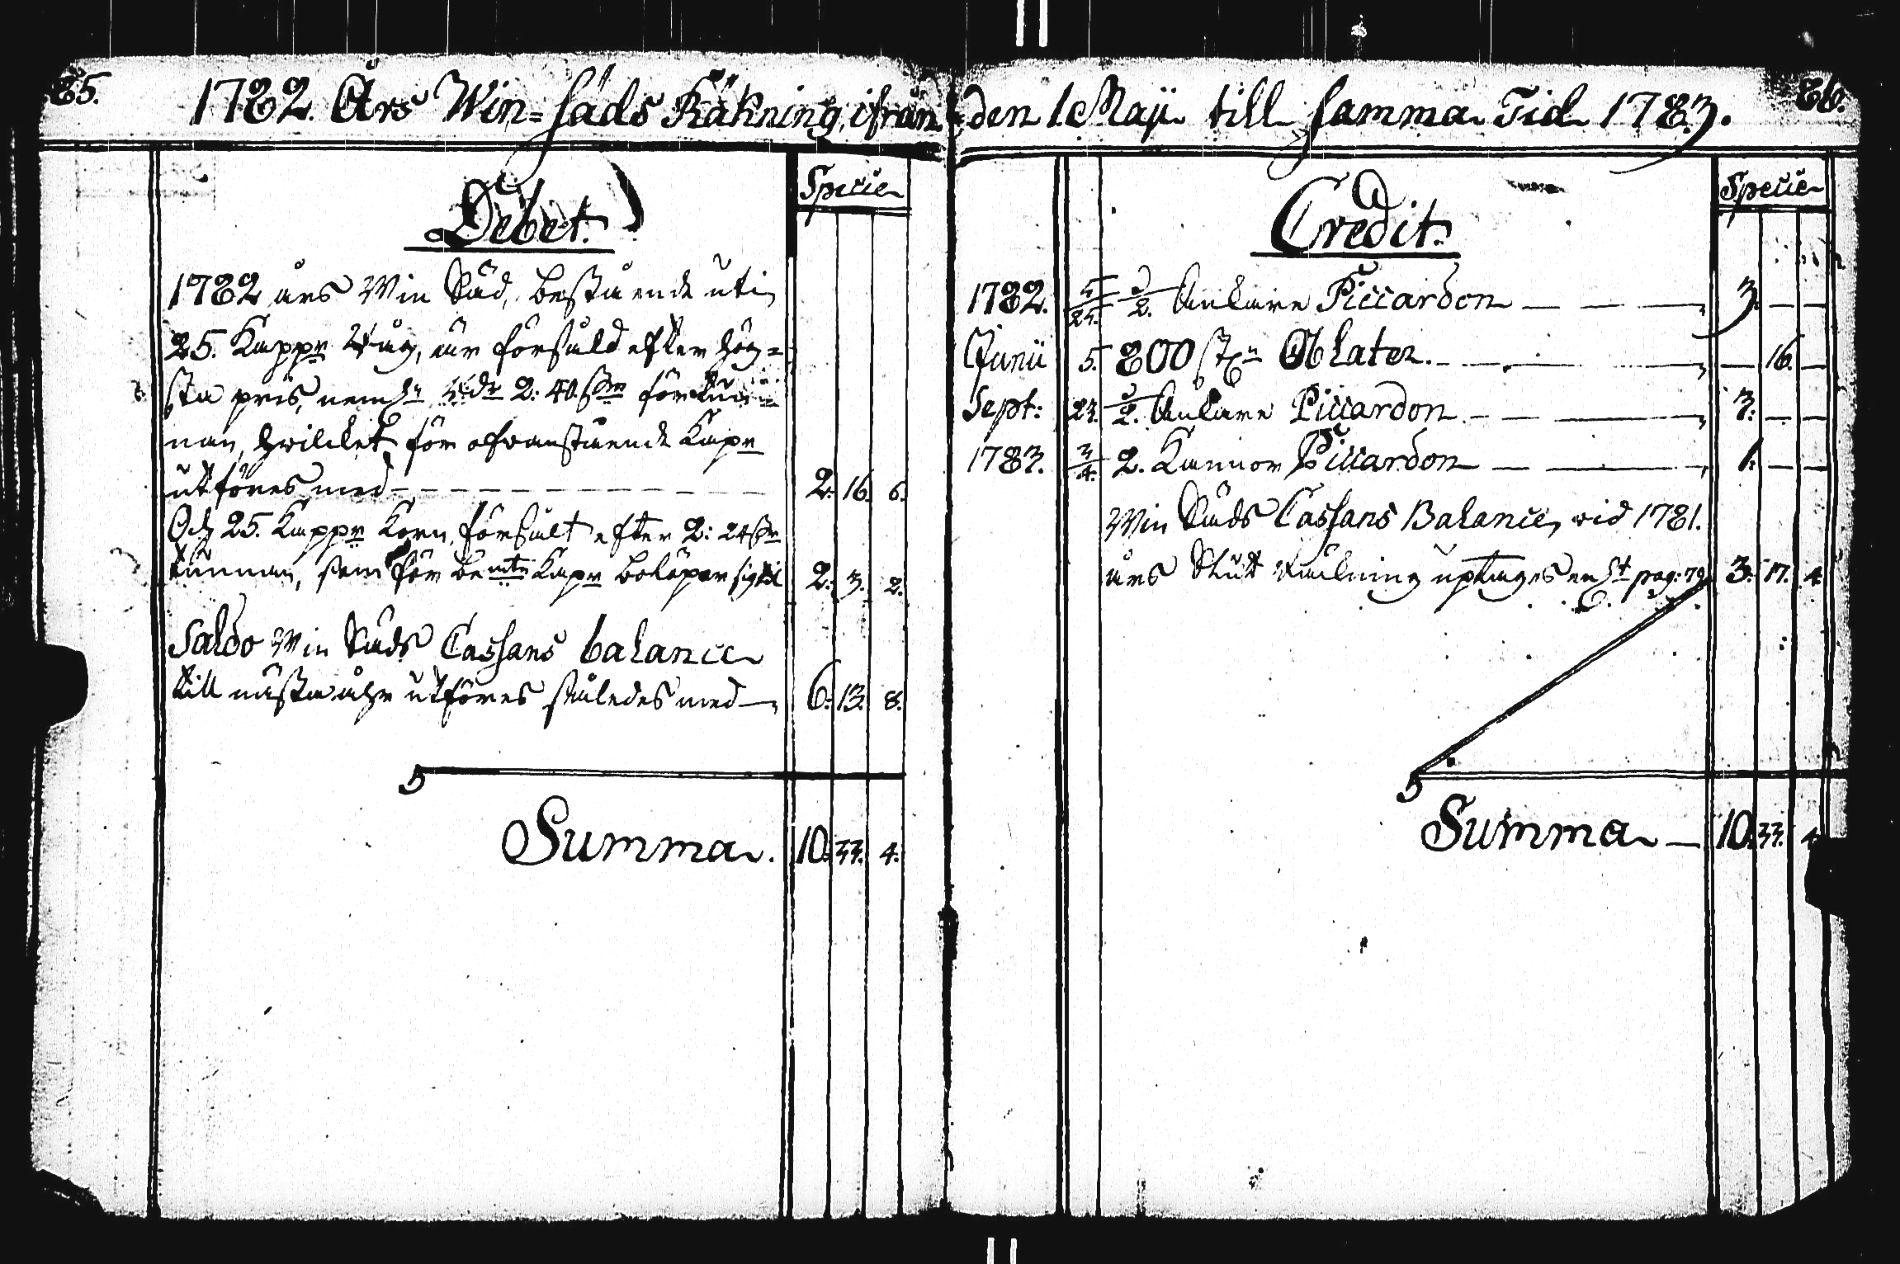 85.
1782. Års Win=Säds Räkning, ifrån den 1. Maji till samma Tid 1783.
86.
Debet.
Specie
1782 års Win Säd, bestående uti
25. Kappr Råg, är försåld efter hög=
sta pris, neml 2: 40 för
nan, hvilket för ofvanstående Kapr
utföres med - - - 2. 16. 6.
Och 25. Kappr Korn, försålt efter 2: 24
tunnan, som för bemte Kapr belöper sig till 2. 3. 2.
Saldo Win Säds Cassans balance
till nästa åhr utföres således med 6. 13. 8.
Summa. 10. 33. 4.
Credit.
Specie
1782. 5/25. Ankare Piccardon — 3. — —
Junii 5. 800 st Oblater. — — 16. —
Sept: 24. Ankare Piccardon — 3. — —
1783. 3/4. 2. Kannor Piccardon — 1. — —
Win Säds Cassans Balance, vid 1781.
års Slut Räkning uptages enl pag: 79 3. 17. 4.
Summa — 10. 33. 4.